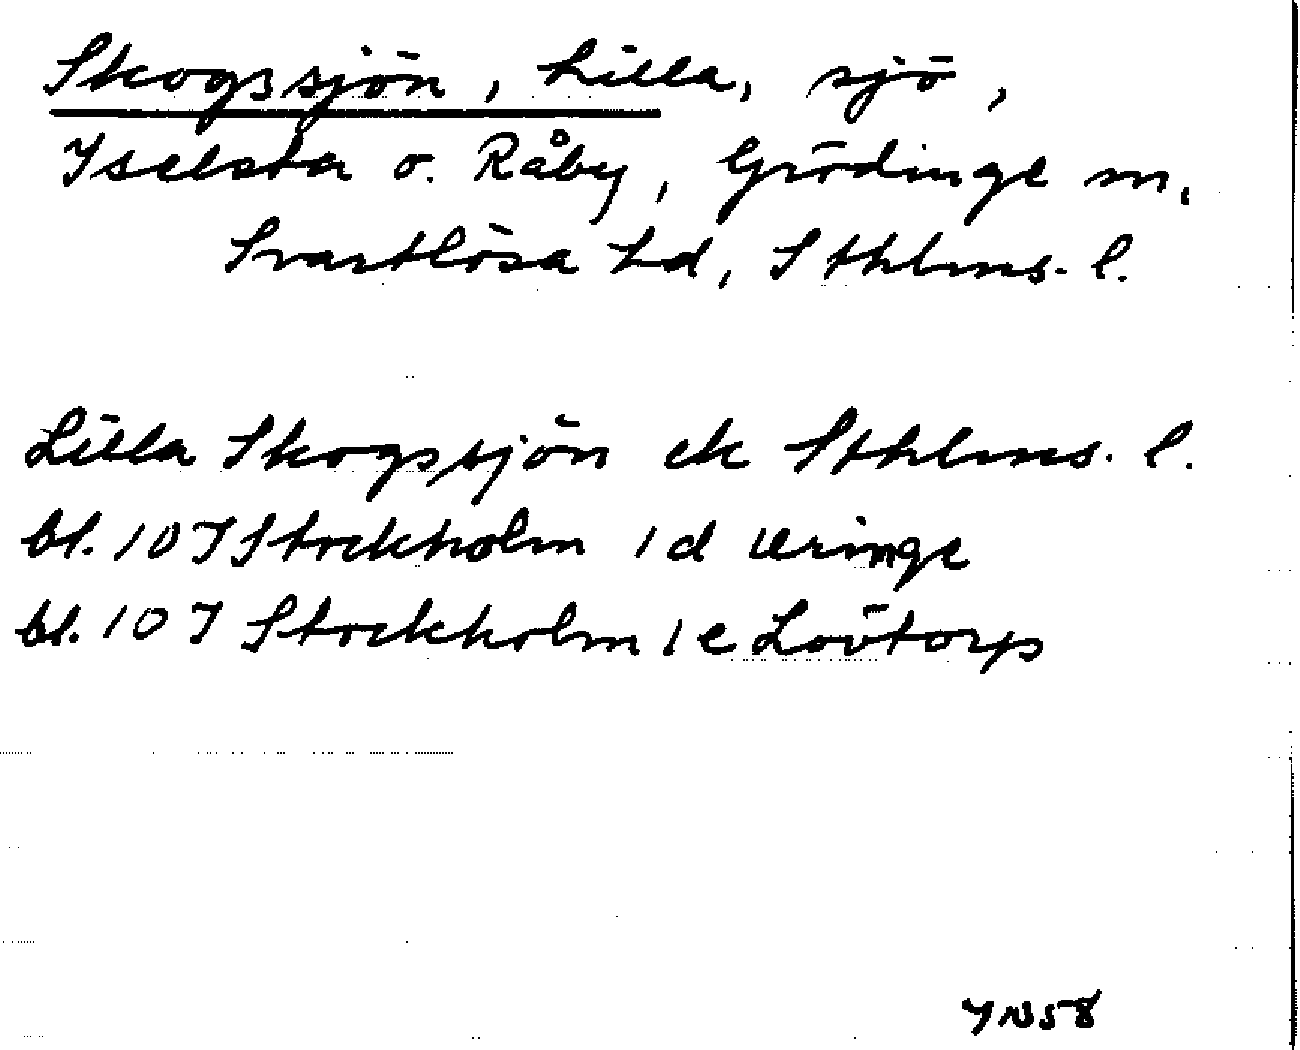 Skogssjön, Lilla, sjö,
Iselsta o. Råby, Grödinge sn,
Svartlösa hd, Sthlms. l.
Lilla Skogssjön ek Sthlms. l.
bl. 10 I Stockholm 1 d Uringe
bl. 10 I Stockholm 1 e Lövtorp
YN58